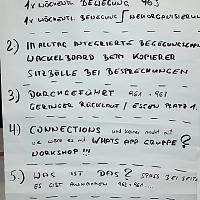 1x WÖCHENTL BEWEGUNG 963
1x WÖCHENTL BEWEGUNG / NEUORGANISIERUNG
2.) IN ALLTAG INTEGRIERTE BEWEGUNGSEINH
WACKELBOARD BEIM KOPIERER
SITZBÄLLE BEI BESPRECHUNGEN
3.) DURCHGEFÜHRT 961 963
GERINGER RÜCKLAUF / ESSEN PLATZ 1.
4.) CONNECTIONS und keiner macht mit
WHATS APP GRUPPE?
WORKSHOP !!!
5.) WAS IST DAS? SPASS BEI SEITE
ES GIBT AUSHÄNGE 961 + 961